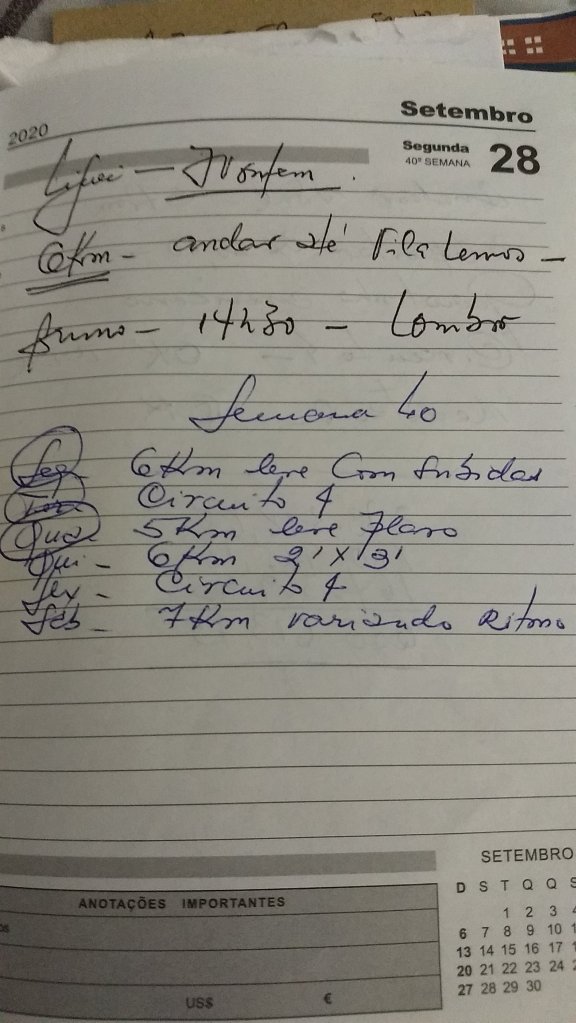 Setembro
2020
Segunda
40ª SEMANA
28
6Km - andar até Vila Lemos -
Bruno - 14h30 - Lombro
Semana 40
Seg 6Km leve Com Subidas
Circuito 4
Qua 5Km leve Plano
Qui - 6Km 2'X3'
Sex - Circuito 4
Sab - 7Km variando Ritmo
SETEMBRO
ANOTAÇÕES IMPORTANTES
D S T Q Q S
1 2 3 4
6 7 8 9 10
13 14 15 16 17
20 21 22 23 24
27 28 29 30
US$ €